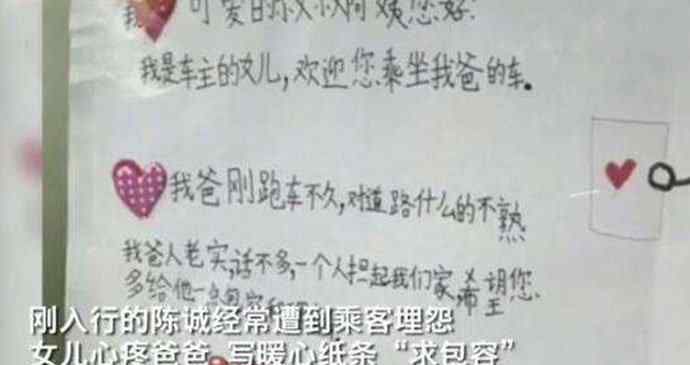 可爱的叔叔阿姨您好
我是车主的女儿,欢迎您乘坐我爸的车。
我爸刚跑车不久,对道路什么的不熟
我爸人老实,话不多,一个人担起我们家希望您
多给他一点包容和
刚入行的陈诚经常遭到乘客埋怨
女儿心疼爸爸 写暖心纸条“求包容”